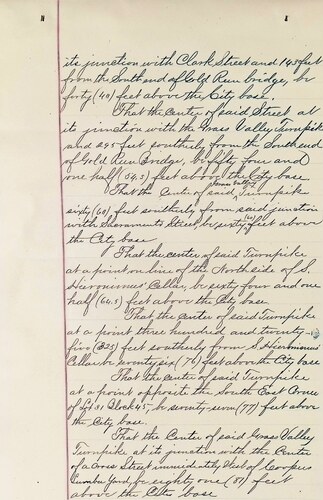 its junction with Clark Street and 145 feet
from the South end of Gold Run bridge, be
forty (40) feet above the City base.
That the Center of said Street at
its junction with the Grass Valley Turnpike
and 295 feet southerly from the South end
of Gold Run Bridge, be fifty four and
one half (54.5) feet above the City base
Grass Valley
That the Center of said Turnpike
sixty (60) feet southerly from said junction
with Sacramento Street, be sixty (60) feet above
the City base
That the center of said Turnpike
at a point on line of the North side of S.
Hieronimus' Cellar, be sixty four and one
half (64.5) feet above the City base
That the Center of said Turnpike
at a point three hundred and twenty-
five (325) feet southerly from S. Hieronimus
Cellar be seventy six (76) feet above the City base
That the Center of said Turnpike
at a point opposite the South East Corner
of Lot 31 Block 45, be seventy-seven (77) feet above
the City base.
That the Center of said Grass Valley
Turnpike at its junction with the Center
of a Cross Street immediately West of Coopers
Lumber Yard, be eighty one (81) feet
above the City base